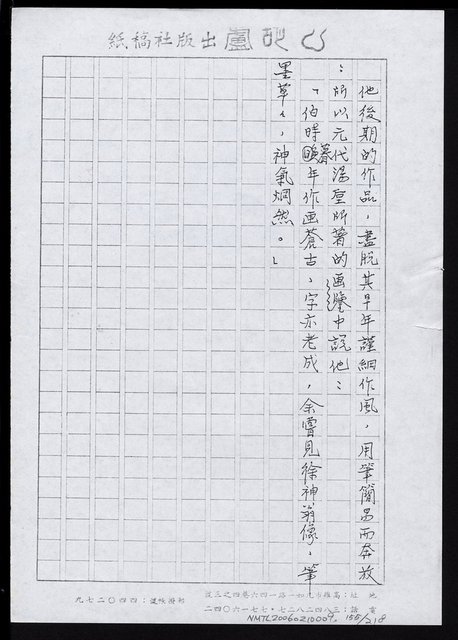 心記廬出版社稿紙
他後期的作品，盡脫其早年謹細作風，用筆簡易而奔放
；所以元代湯垕所著的画鑒中說他：
「伯時暮年作画蒼古，字亦老成，余嘗見徐神翁像，筆
墨草々，神氣炯然。」
地址：高雄市九如一路一四六巷四之三號
電話：三八四二八二七・七七一六〇四二
郵撥帳號：四四〇二七九
NMTL20060210009 155/218